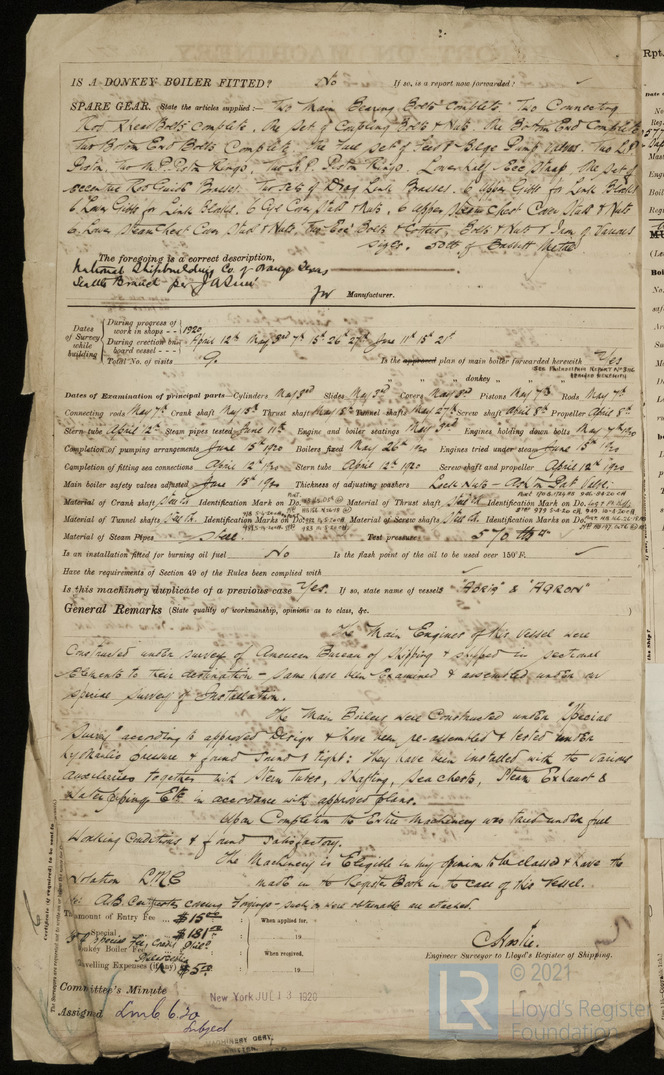 IS A DONKEY BOILER FITTED? No If so, is a report now forwarded?
SPARE GEAR. State the articles supplied:— Two Main Bearing Bolts Complete. Two Connecting
Rod Bolts Complete. One Set of Coupling Bolts & Nuts. One Bottom End Complete
Two Bottom End Bolts Complete. One Full Set of Feed & Bilge Pump Valves. Two L.P.
Piston Two M.P. Piston Rings, Two H.P. Piston Rings. Lower half Ecc Strap, One Set of
eccentric Rod Guide Brasses. Two Sets of Drag Link Brasses. 6 Upper Gibs for Link Blocks
6 Lower Gibs for Link Blocks. 6 Cyl Cover Studs & Nuts, 6 Upper Steam Chest Cover Studs & Nuts
6 Lower Steam Chest Cover Studs & Nuts, Two Ecc Bolts & Cotters, Bolts & Nuts & Iron of Various
Sizes. 50 lb of Babbitt Metal
The foregoing is a correct description,
National Shipbuilding Co of Orange Texas
Seattle Branch per
Manufacturer.
Dates of Survey while building
During progress of work in shops - - 1920
During erection on board vessel - - - April 12th May 3rd 7th 15th 26th 27th June 11th 15th 21st
Total No. of visits 9.
Is the approved plan of main boiler forwarded herewith Yes
" " " donkey " " "
Dates of Examination of principal parts—Cylinders May 3rd Slides May 3rd Covers May 3rd Pistons May 7th Rods May 7th
Connecting rods May 7th Crank shaft May 15th Thrust shaft May 15th Tunnel shafts May 27th Screw shaft April 8th Propeller April 8th
Stern tube April 12th Steam pipes tested June 11th Engine and boiler seatings May 3rd Engines holding down bolts May 7th 1920
Completion of pumping arrangements June 15th 1920 Boilers fixed May 26th 1920 Engines tried under steam June 15th 1920
Completion of fitting sea connections April 12th 1920 Stern tube April 12th 1920 Screw shaft and propeller April 12th 1920
Main boiler safety valves adjusted June 15th 1920 Thickness of adjusting washers Lock Nuts
Material of Crank shaft Steel Identification Mark on Do. Material of Thrust shaft Steel Identification Mark on Do.
Material of Tunnel shafts Steel Identification Marks on Do. Material of Screw shafts Steel Identification Marks on Do.
Material of Steam Pipes Steel Test pressure 570 lbs
Is an installation fitted for burning oil fuel No Is the flash point of the oil to be used over 150°F.
Have the requirements of Section 49 of the Rules been complied with
Is this machinery duplicate of a previous case Yes. If so, state name of vessels "ABRIG" & "AGRON"
General Remarks (State quality of workmanship, opinions as to class, &c. )
The Main Engines of this Vessel were
Constructed under survey of American Bureau of Shipping & shipped in sectional
elements to their destination – Same have been Examined & assembled under our
special survey of Installation.
The Main Boilers were Constructed under "Special
Survey" according to approved Design & have been re-assembled & tested under
hydraulic pressure & found sound & tight: They have been installed with the various
auxiliaries together with Stern Tubes, Shafting, Sea Chests, Steam Exhaust &
Water pipings Etc. in accordance with approved plans.
Upon Completion the Entire Machinery was tried under full
Working Conditions & found satisfactory.
The Machinery is Eligible in my opinion to be classed & have the
notation LMC made in the Register Book in the case of this Vessel.
A.B. Certificates covering Forgings - such as were obtainable are attached.
The amount of Entry Fee ... $15.00
Special ... $181.00
Donkey Boiler Fee
Travelling Expenses (if any) $5.00
When applied for,
19
When received,
19
Engineer Surveyor to Lloyd's Register of Shipping.
Committee's Minute New York JUL 13 1920
Assigned LMC 6.20
Subject
MACHINERY CERT.
Certificate (if required) to be sent to
© 2021
LR
Lloyd's Register
Foundation
Rpt.